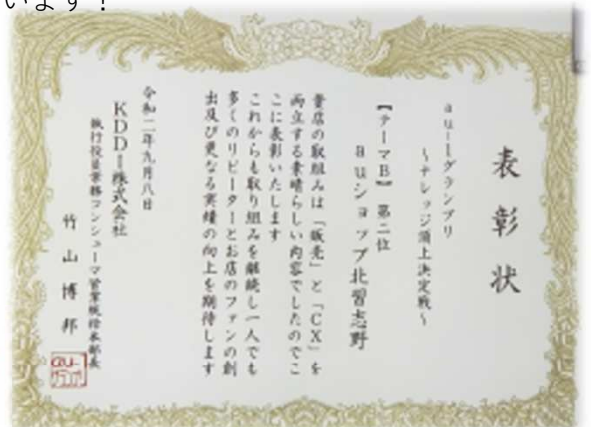 います!
表彰状
au-1グランプリ
~ナレッジ頂上決定戦~
【テーマB】 第二位
auショップ北習志野
貴店の取組みは「販売」と「CX」を
両立する素晴らしい内容でしたのでこ
こに表彰いたします
これからも取り組みを継続し一人でも
多くのリピーターとお店のファンの創
出及び更なる実績の向上を期待します
令和二年九月八日
KDDI株式会社
執行役員常務コンシューマ営業統括本部長
竹山博邦